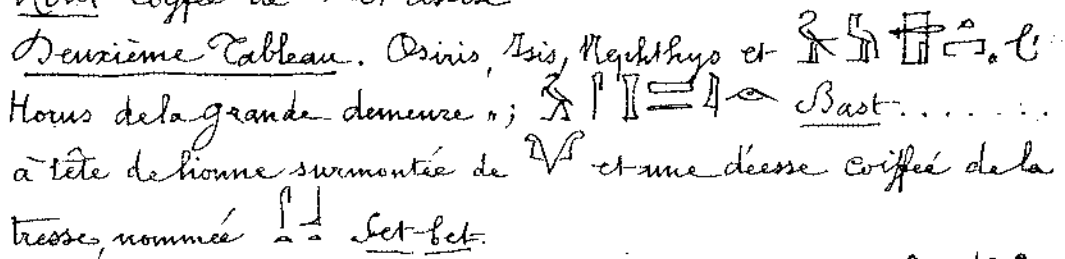 coiffée de
Deuxième Tableau. Osiris, Isis, Nephthys et
Horus de la grande demeure "; Bast........
à tête de lionne surmontée de et une déesse coiffée de la
tresse, nommée Set-bet.